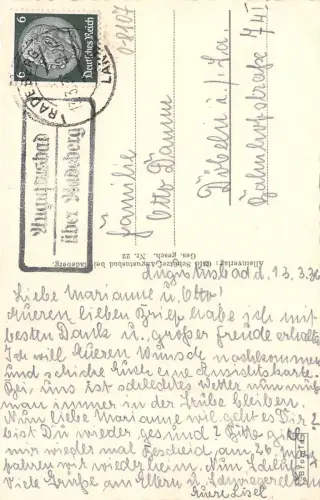 6 6
Deutsches Reich
RADEBERG
Augustusbad
über Radeberg
0-8107
Familie
Otto Damm
Döbeln i./Sa.
Bahnhofstraße 74I
Alleinverlag: Augustusbad bei Radeberg.
Ges. gesch. Nr. 22
Augustusbad d. 13.3.36
Liebe Marianne u. Otto!
Eueren lieben Brief habe ich mit
besten Dank u. großer Freude erhalten
Ich will Eueren Wunsch nachkommen
und schicke Euch eine Ansichtskarte.
Bei uns ist schlechtes Wetter nun muß
man immer in der Stube bleiben.
Nun liebe Marianne wie geht es Dir?
Bist Du wieder gesund? Bitte gib
mir wieder mal Bescheid am 26.
fahren wir wieder heim. Nun
Viele Grüße an Eltern u.
Euere